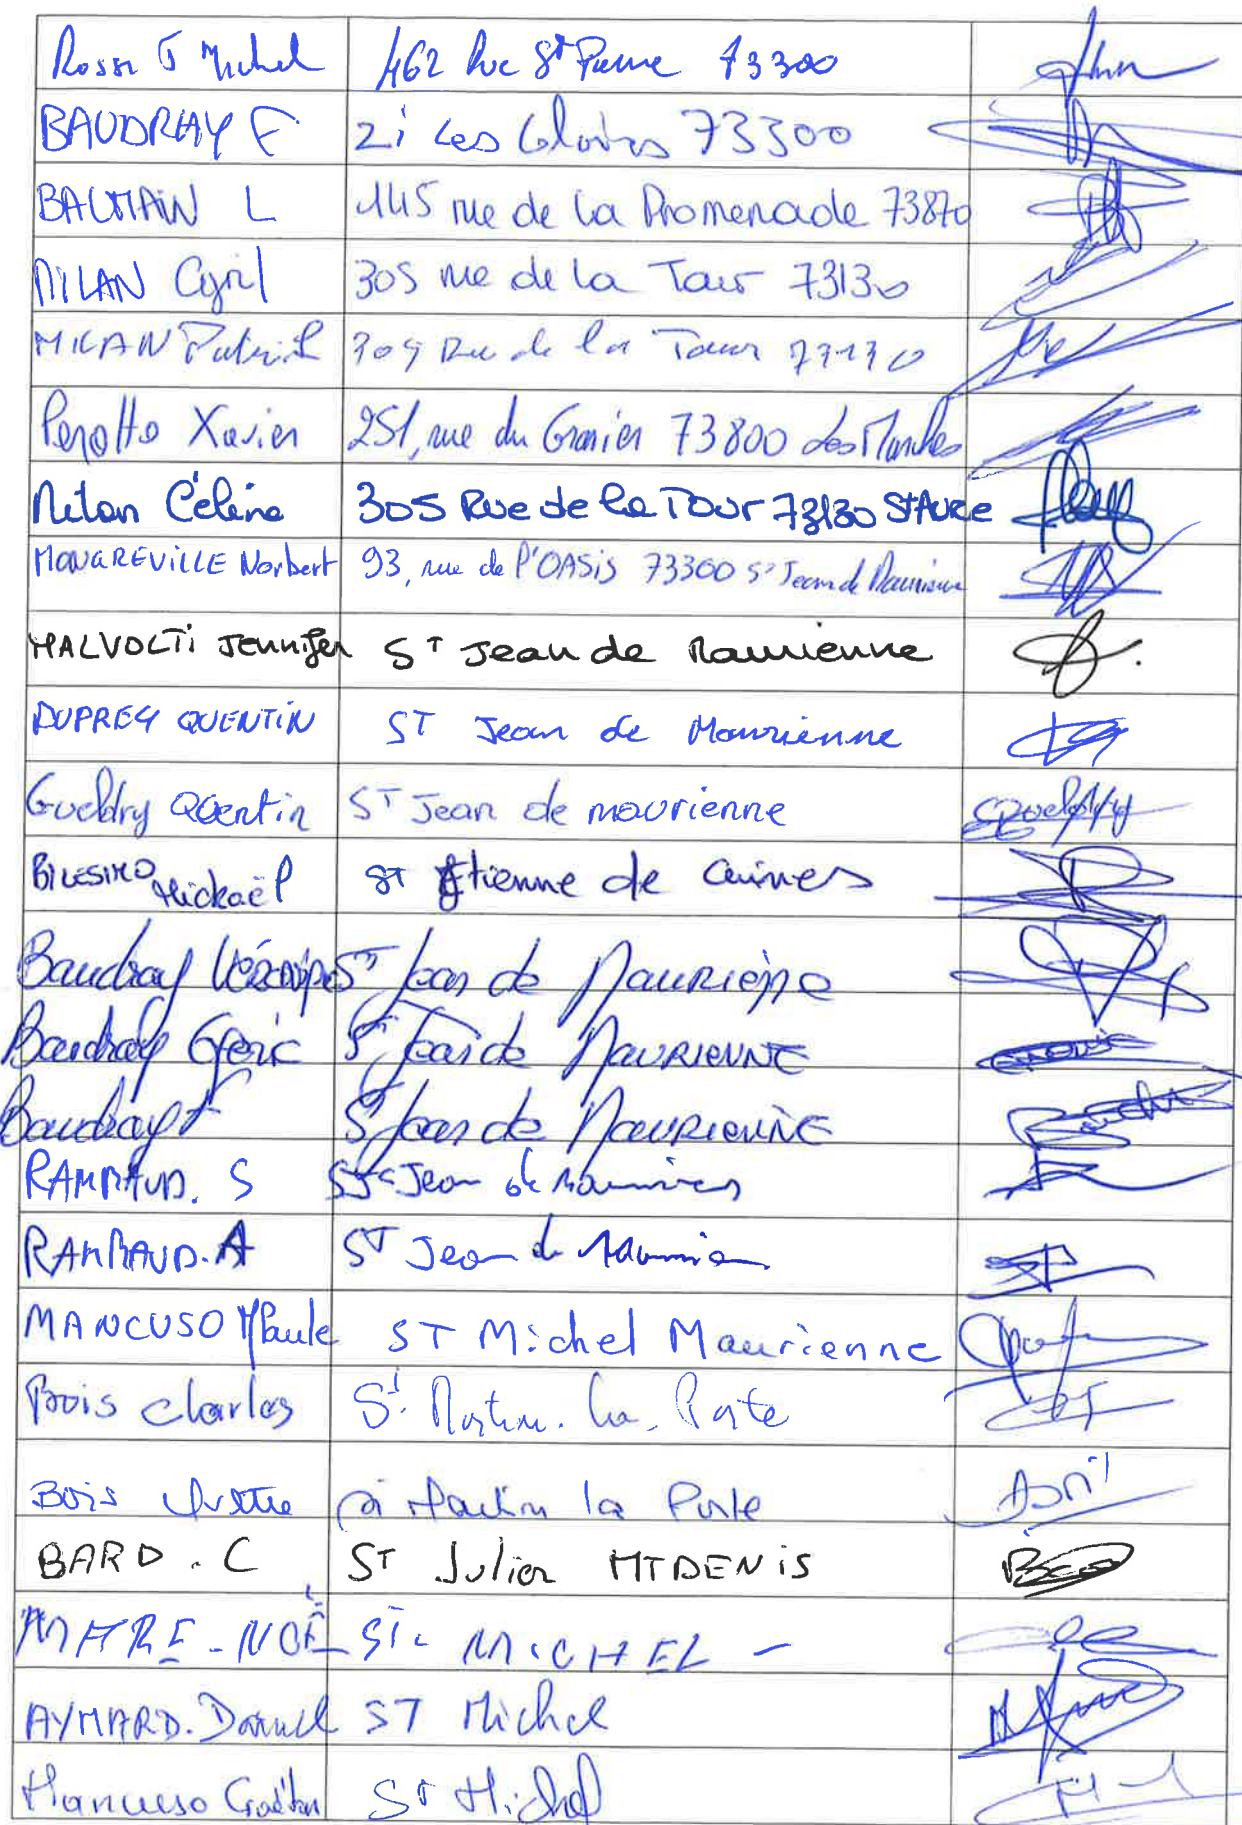 Rossi J Michel 462 Rue St Pierre 73300
BAUDRAY F Zi Les 73300
BALMAIN L 145 rue de la Promenade 73870
MILAN Cyril 305 rue de la Tour 73130
MILAN Patrick 305 Rue de la Tour 73130
Perotto Xavier 251, rue du Granier 73800 Les Marches
Milan Céline 305 Rue de la Tour 73130 St
MONGREVILLE Norbert 93, rue de l'OASIS 73300 St Jean de Maurienne
MALVOLTI Jennifer ST Jean de Maurienne
DUPREY QUENTIN ST Jean de Maurienne
Gueldry Quentin ST Jean de maurienne
Mickaël ST Etienne de Cuines
Baudray ST Jean de Maurienne
Baudray ST Jean de MAURIENNE
Baudray F ST Jean de MAURIENNE
RAMBAUD. S ST Jean de Maurienne
RAMBAUD. A ST Jean de Maurienne
MANCUSO MPaule ST Michel Maurienne
Bois Charles St Martin. La. Porte
Bois St Martin la Porte
BARD. C ST Julien MTDENIS
ST. MICHEL -
AYMARD. Daniel ST Michel
Mancuso Gaëtan ST Michel